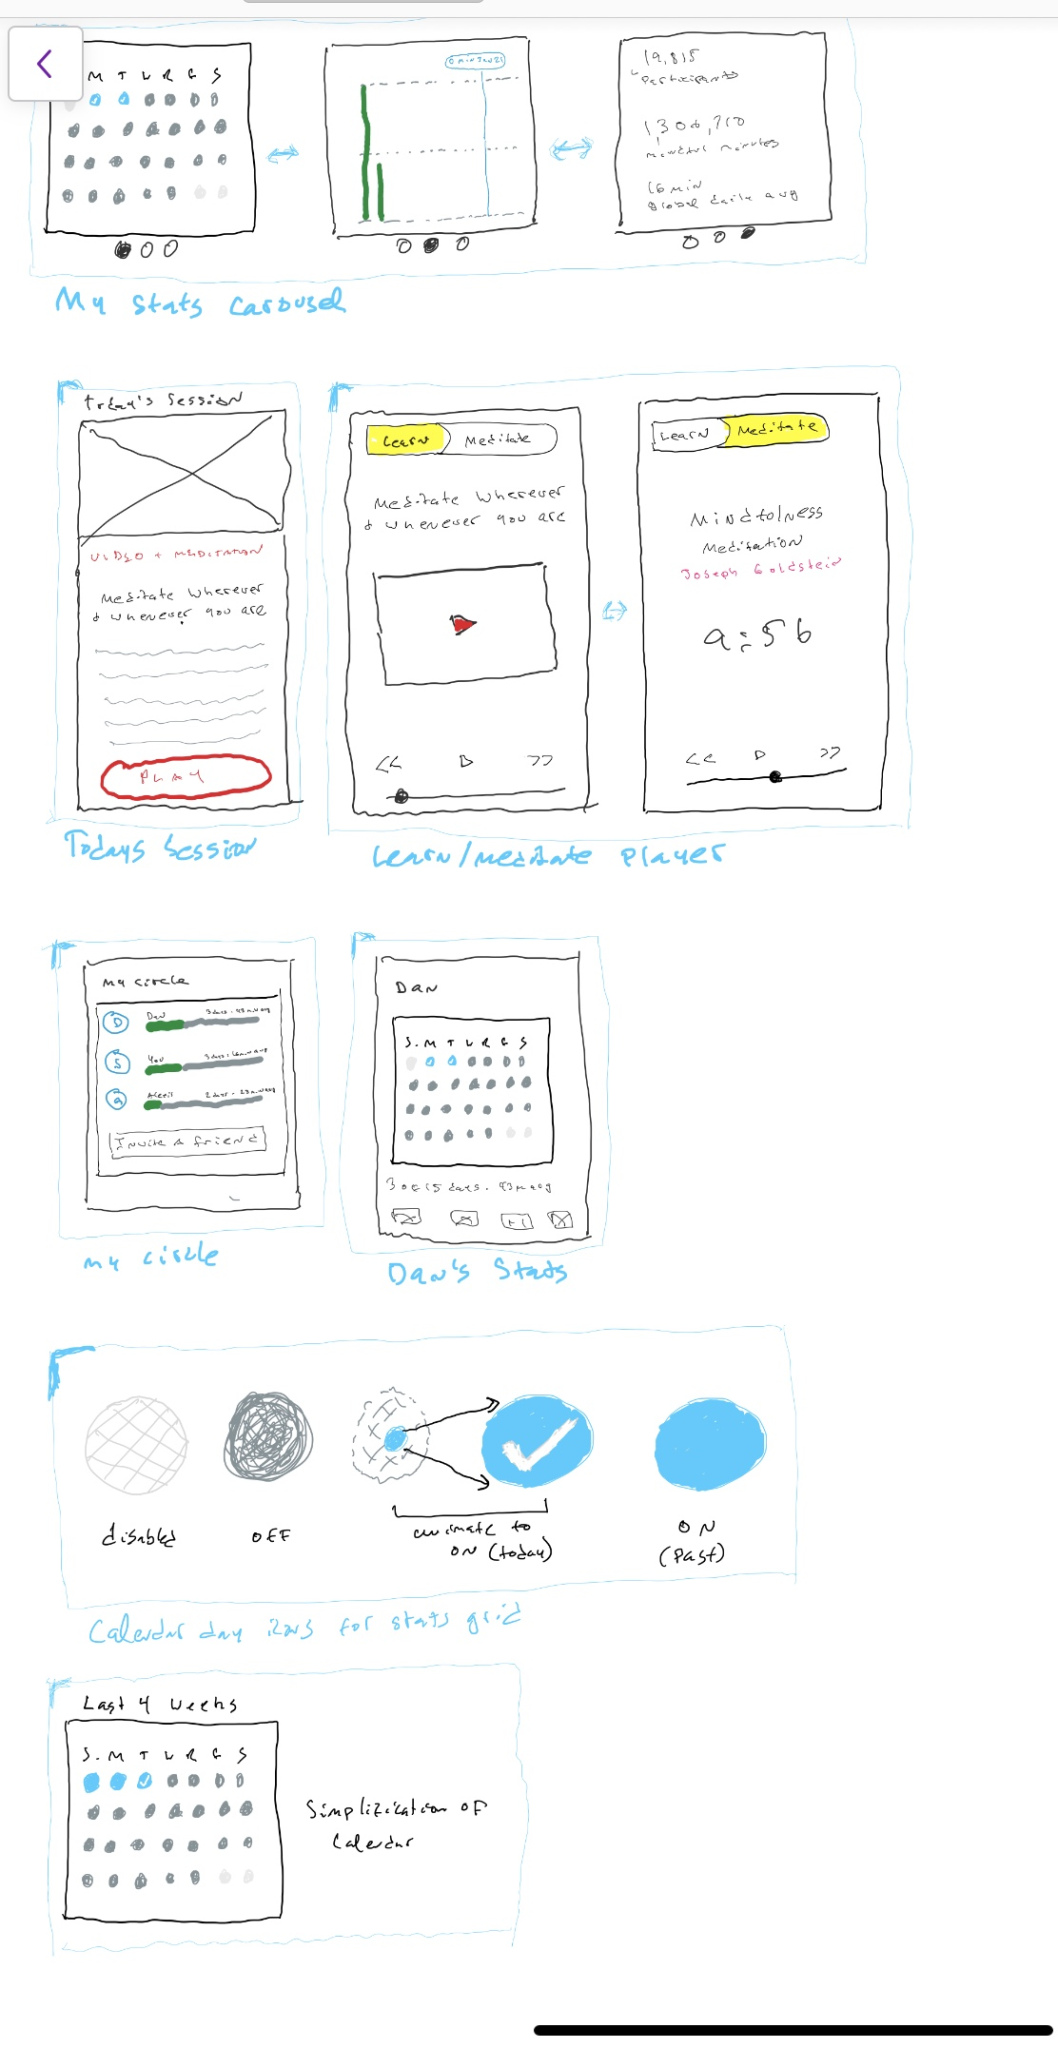 M T W R F S
0 min Jan 25
19,815
Participants
1,306,710
mindful minutes
16 min
Global daily avg
My Stats Carousel
Today's Session
VIDEO + MEDITATION
Meditate Wherever
& whenever you are
PLAY
Todays Session
Learn Meditate
Meditate Wherever
& whenever you are
<< >>
Learn Meditate
Mindfulness
Meditation
Joseph Goldstein
9:56
<< >>
Learn/Meditate Player
My Circle
D
Dan
S
You
a
Alexis
Invite a friend
My Circle
Dan
S. M T W R F S
3 of 15 days.
+1
Dan's Stats
disabled
OFF
animate to
ON (today)
ON
(Past)
Calendar day for stats grid
Last 4 Weeks
S. M T W R F S
Simplification OF
Calendar